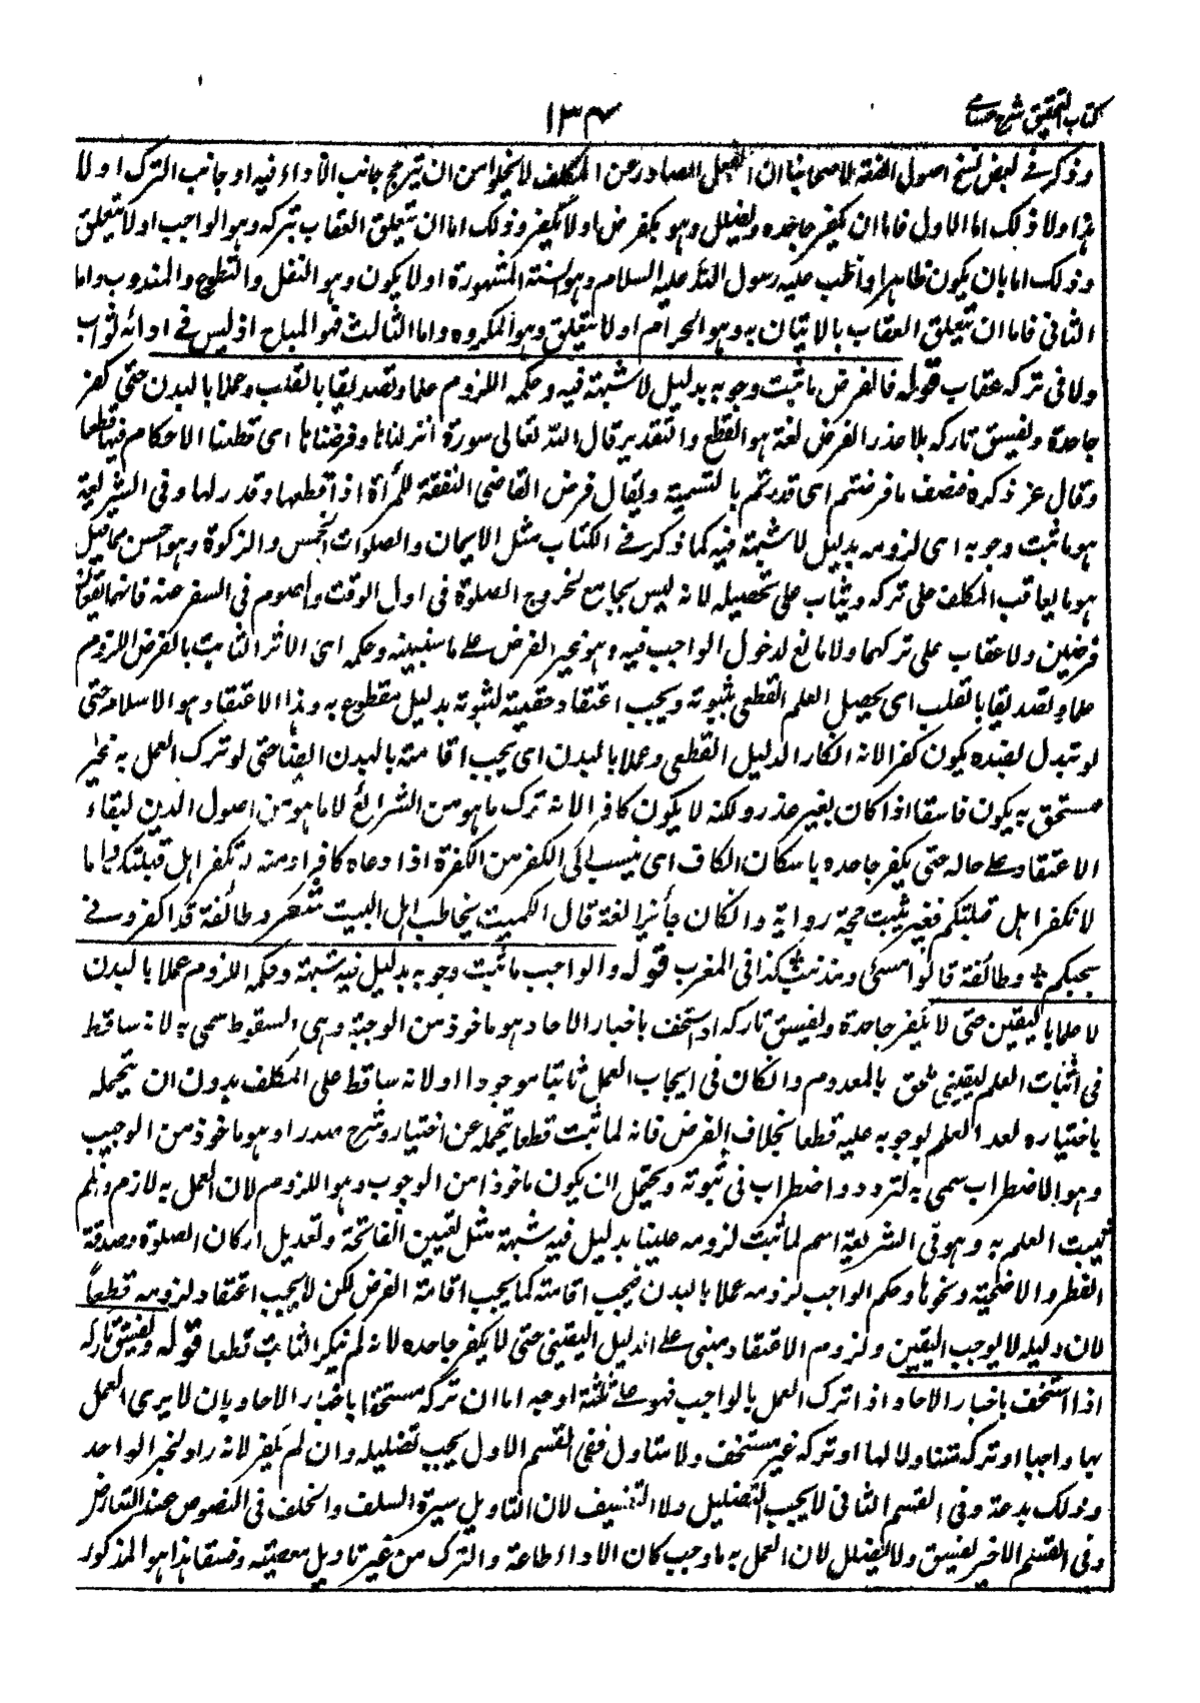 كتاب التحقيق شرح حسامي
١٣٤
وذكر في بعض نسخ اصول الفقه لاصحابنا ان الفعل الصادر عن المكلف لا يخلوا من ان يترجح جانب الاداء فيه او جانب الترك او لا
هذا ولا ذلك اما الاول فاما ان يكفر جاحده ويضلل وهو الفرض او لا يكفر وذلك اما ان يتعلق العقاب بتركه وهو الواجب او لا يتعلق
وذلك اما بان يكون ظاهرا واظب عليه رسول الله عليه السلام وهو السنة المشهورة او لا يكون وهو النفل والتطوع والمندوب واما
الثاني فاما ان يتعلق العقاب بالاتيان به وهو الحرام او لا يتعلق وهو المكروه واما الثالث فهو المباح اذ ليس في ادائه ثواب
ولا في تركه عقاب قوله فالفرض ما ثبت وجوبه بدليل لا شبهة فيه وحكمه اللزوم علما وتصديقا بالقلب وعملا بالبدن حتى يكفر
جاحده ويفسق تاركه بلا عذر الفرض لغة هو القطع والتقدير قال الله تعالى سورة انزلناها وفرضناها اى قطعنا الاحكام فيها قطعا
وقال عز ذكره فنصف ما فرضتم اى قدرتم بالتسمية ويقال فرض القاضى النفقة للمرأة اذا قطعها وقدر لها وفى الشريعة
هو ما ثبت وجوبه اى لزومه بدليل لا شبهة فيه كما ذكر في الكتاب مثل الايمان والصلوات الخمس والزكوة وهو احسن مما قيل
هو ما يعاقب المكلف على تركه ويثاب على تحصيله لانه ليس بجامع لخروج الصلوة فى اول الوقت والصوم فى السفر عنه فانهما يقعان
فرضين ولا عقاب على تركهما ولا مانع لدخول الواجب فيه وهو غير الفرض على ما سنبينه وحكمه اى الاثر الثابت بالفرض اللزوم
علما وتصديقا بالقلب اى يحصل العلم القطعى بثبوته ويجب اعتقاد حقيته لثبوته بدليل مقطوع به وهذا الاعتقاد هو الاسلام حتى
لو تبدل بضده يكون كفرا لانه انكار الدليل القطعى وعملا بالبدن اى يجب اقامته بالبدن ايضا حتى لو ترك العمل به غير
مستخف به يكون فاسقا اذا كان بغير عذر ولكنه لا يكون كافرا لانه ترك ما هو من الشرائع لا ما هو من اصول الدين لبقاء
الاعتقاد على حاله حتى يكفر جاحده باسكان الكاف اى ينسب الى الكفر من اكفره اذا دعاه كافرا ومنه لا تكفر اهل قبلتك واما
لا تكفر اهل قبلتكم فغير ثبت صحة رواية وان كان جائزا لغة قال الكميت يخاطب اهل البيت شعر وطائفة قد اكفروني
بحبكم * وطائفة قالوا مسئ ومذنب * كذا فى المغرب قوله والواجب ما ثبت وجوبه بدليل فيه شبهة وحكمه اللزوم عملا بالبدن
لا علما باليقين حتى لا يكفر جاحده ويفسق تاركه اذا استخف باخبار الاحاد وهو ماخوذ من الوجبة وهى السقوط سمى به لانه ساقط
فى اثبات العلم اليقينى ملحق بالمعدوم وان كان فى ايجاب العمل ثابتا موجودا او لانه ساقط على المكلف بدون ان يتحمله
باختياره لعدم العلم بوجوبه عليه قطعا بخلاف الفرض فانه لما ثبت قطعا يتحمله عن اختيار وشرح صدر او هو ماخوذ من الوجيب
وهو الاضطراب سمى به لتردد واضطراب فى ثبوته ويحتمل ان يكون ماخوذا من الوجوب وهو اللزوم لان العمل به لازم وان لم
يثبت العلم به وهو فى الشريعة اسم لما ثبت لزومه علينا بدليل فيه شبهة مثل تعيين الفاتحة وتعديل اركان الصلوة وصدقة
الفطر والاضحية ونحوها وحكم الواجب لزومه عملا بالبدن فيجب اقامته كما يجب اقامة الفرض لكن لا يجب اعتقاد لزومه قطعا
لان دليله لا يوجب اليقين ولزوم الاعتقاد مبنى على الدليل اليقينى حتى لا يكفر جاحده لانه لم ينكر الثابت قطعا قوله ويفسق تاركه
اذا استخف باخبار الاحاد اذا ترك العمل بالواجب فهو على ثلثة اوجه اما ان تركه مستخفا باخبار الاحاد بان لا يرى العمل
بها واجبا او تركه متاولا لها او تركه غير مستخف ولا متاول ففى القسم الاول يجب تضليله وان لم يكفر لانه راد لخبر الواحد
وذلك بدعة وفى القسم الثانى لا يجب التضليل ولا التفسيق لان التاويل سيرة السلف والخلف فى النصوص عند التعارض
وفى القسم الاخير يفسق ولا يضلل لان العمل به ما وجب كان الاداء طاعة والترك من غير تاويل معصية وفسقا هذا هو المذكور